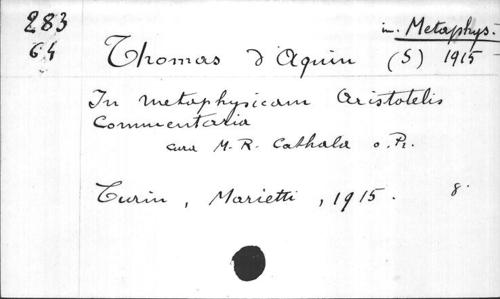 283
64
in. Metaphys.
Thomas d'Aquin (S) 1915
In metaphysicam Aristotelis
Commentaria
cura M. R. Cathala o. P.
Turin, Marietti, 1915. 8.